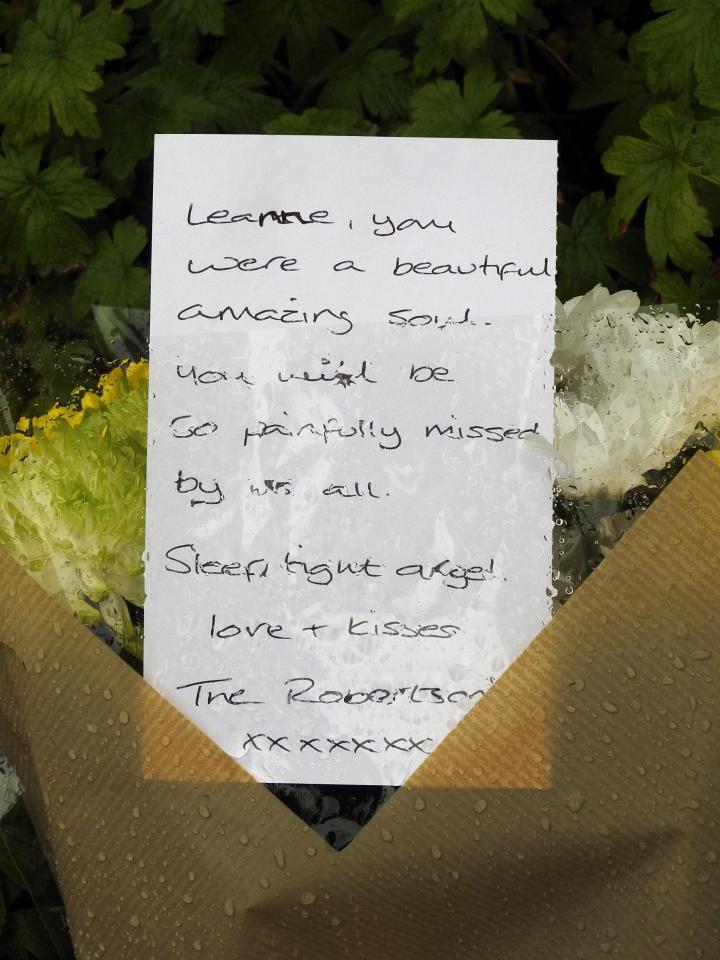 Leanne, you
were a beautiful
amazing soul.
You will be
so painfully missed
by us all.
Sleep tight angel.
love + kisses
The Robertson
xxxxxxx